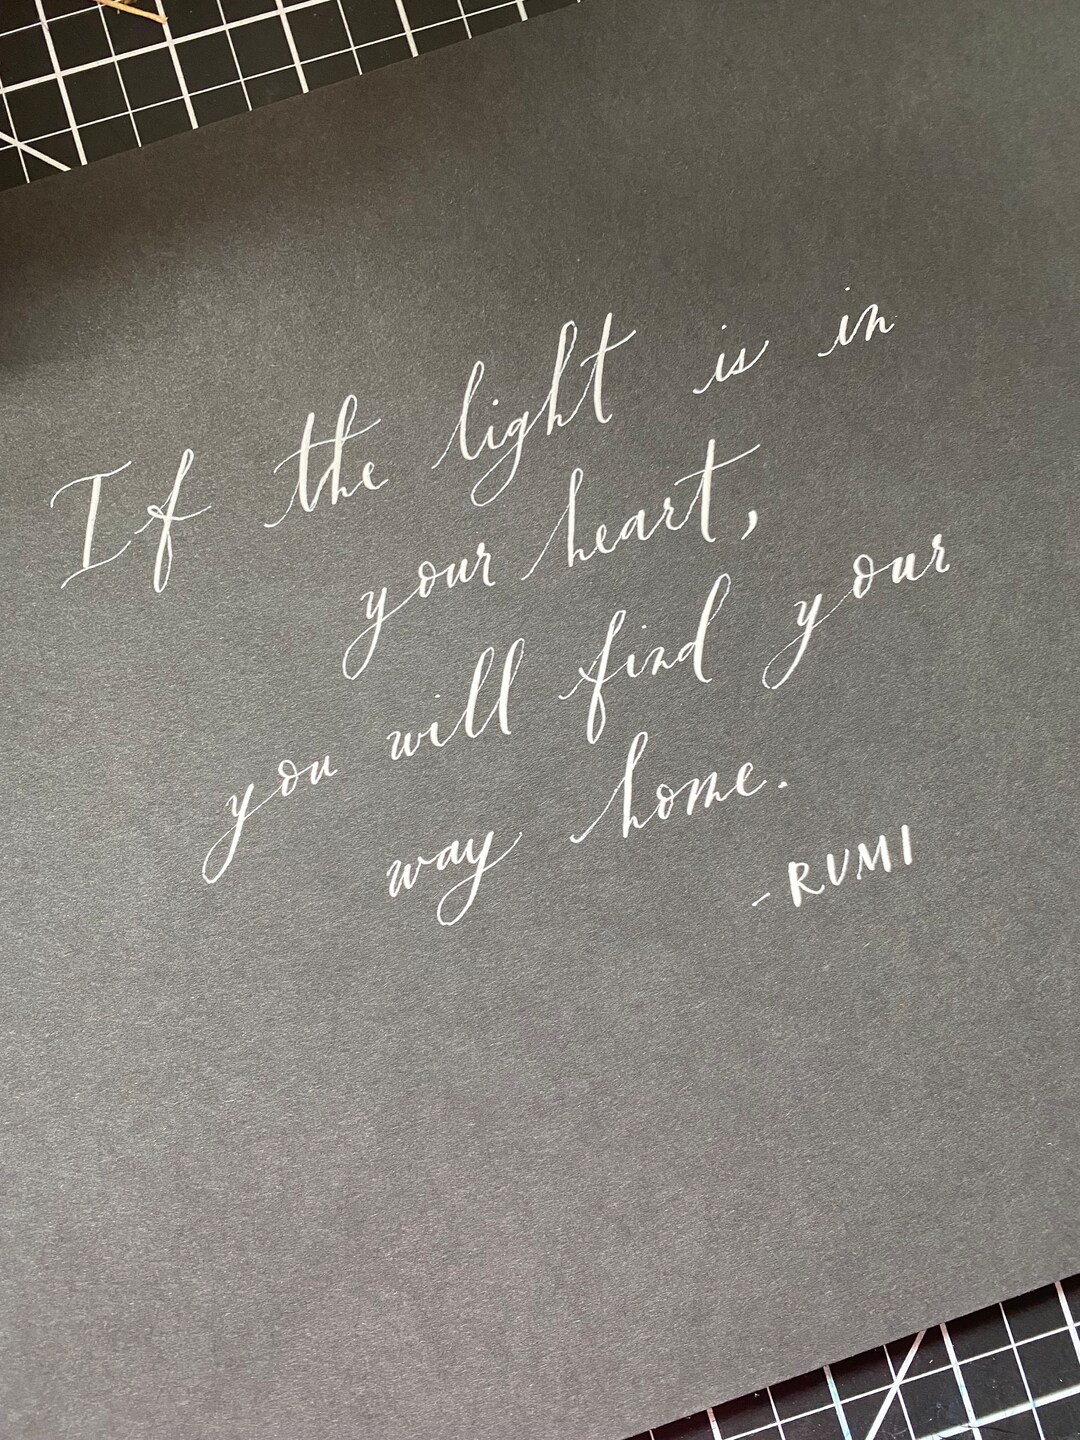 If the light is in
your heart,
you will find your
way home.
-RUMI